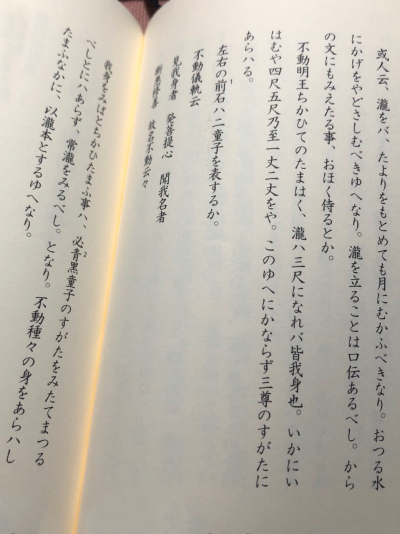 或人云、瀧をバ、たよりをもとめても月にむかふべきなり。おつる水
にかげをやどさしむべきゆへなり。瀧を立ることは口伝あるべし。から
の文にもみえたる事、おほく侍るとか。
不動明王ちかひてのたまはく、瀧ハ三尺になれバ皆我身也。いかにい
はむや四尺五尺乃至一丈二丈をや。このゆへにかならず三尊のすがたに
あらハる。
左右の前石ハ二童子を表するか。
不動儀軌云
見我身者 発菩提心 聞我名者
断悪修善 故名不動云々
我身をみばとちかひたまふ事ハ、必青黒童子のすがたをみたてまつる
べしとにハあらず、常瀧をみるべし。となり。不動種々の身をあらハし
たまふなかに、以瀧本とするゆへなり。